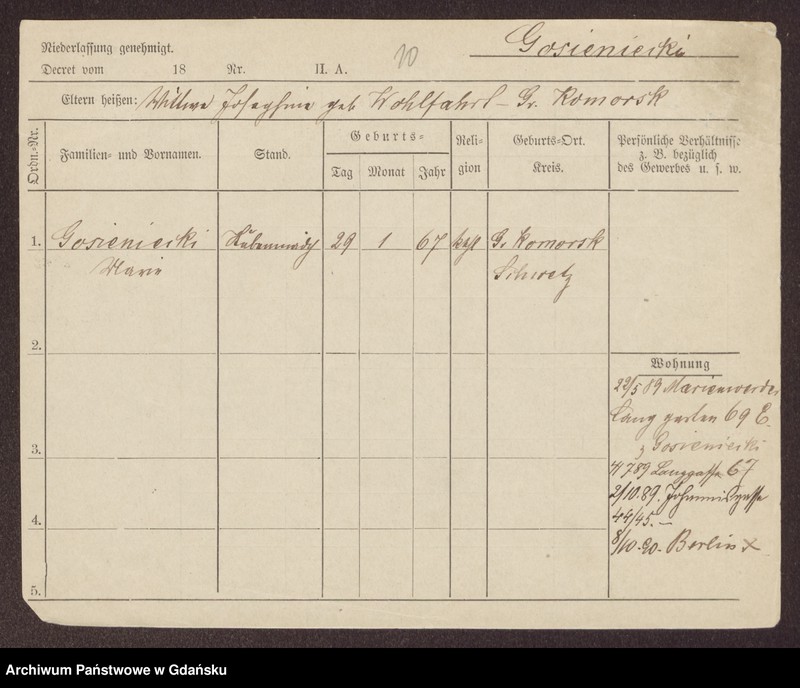 Niederlassung genehmigt.
Gosieniecki
Decret vom 18 Nr. II. A. 10
Eltern heißen: Wittwe Josephine geb Wohlfahrt - Gr. Komorsk
Ordn.-Nr.
Familien- und Vornamen.
Stand.
Geburts-
Tag Monat Jahr
Religion
Geburts-Ort.
Kreis.
Persönliche Verhältnisse
z. B. bezüglich
des Gewerbes u. s. w.
1. Gosieniecki 29 1 67 kath Gr Komorsk
Marie Schwetz
2.
Wohnung
22/5 89 Marienwerder
Lang garten 69 E.
z Gosieniecki
3.
4/7 89 Langgasse 67
2/10.89. Johannisgasse
4.
44/45. -
8/10.90. Berlin x
5.
Archiwum Państwowe w Gdańsku